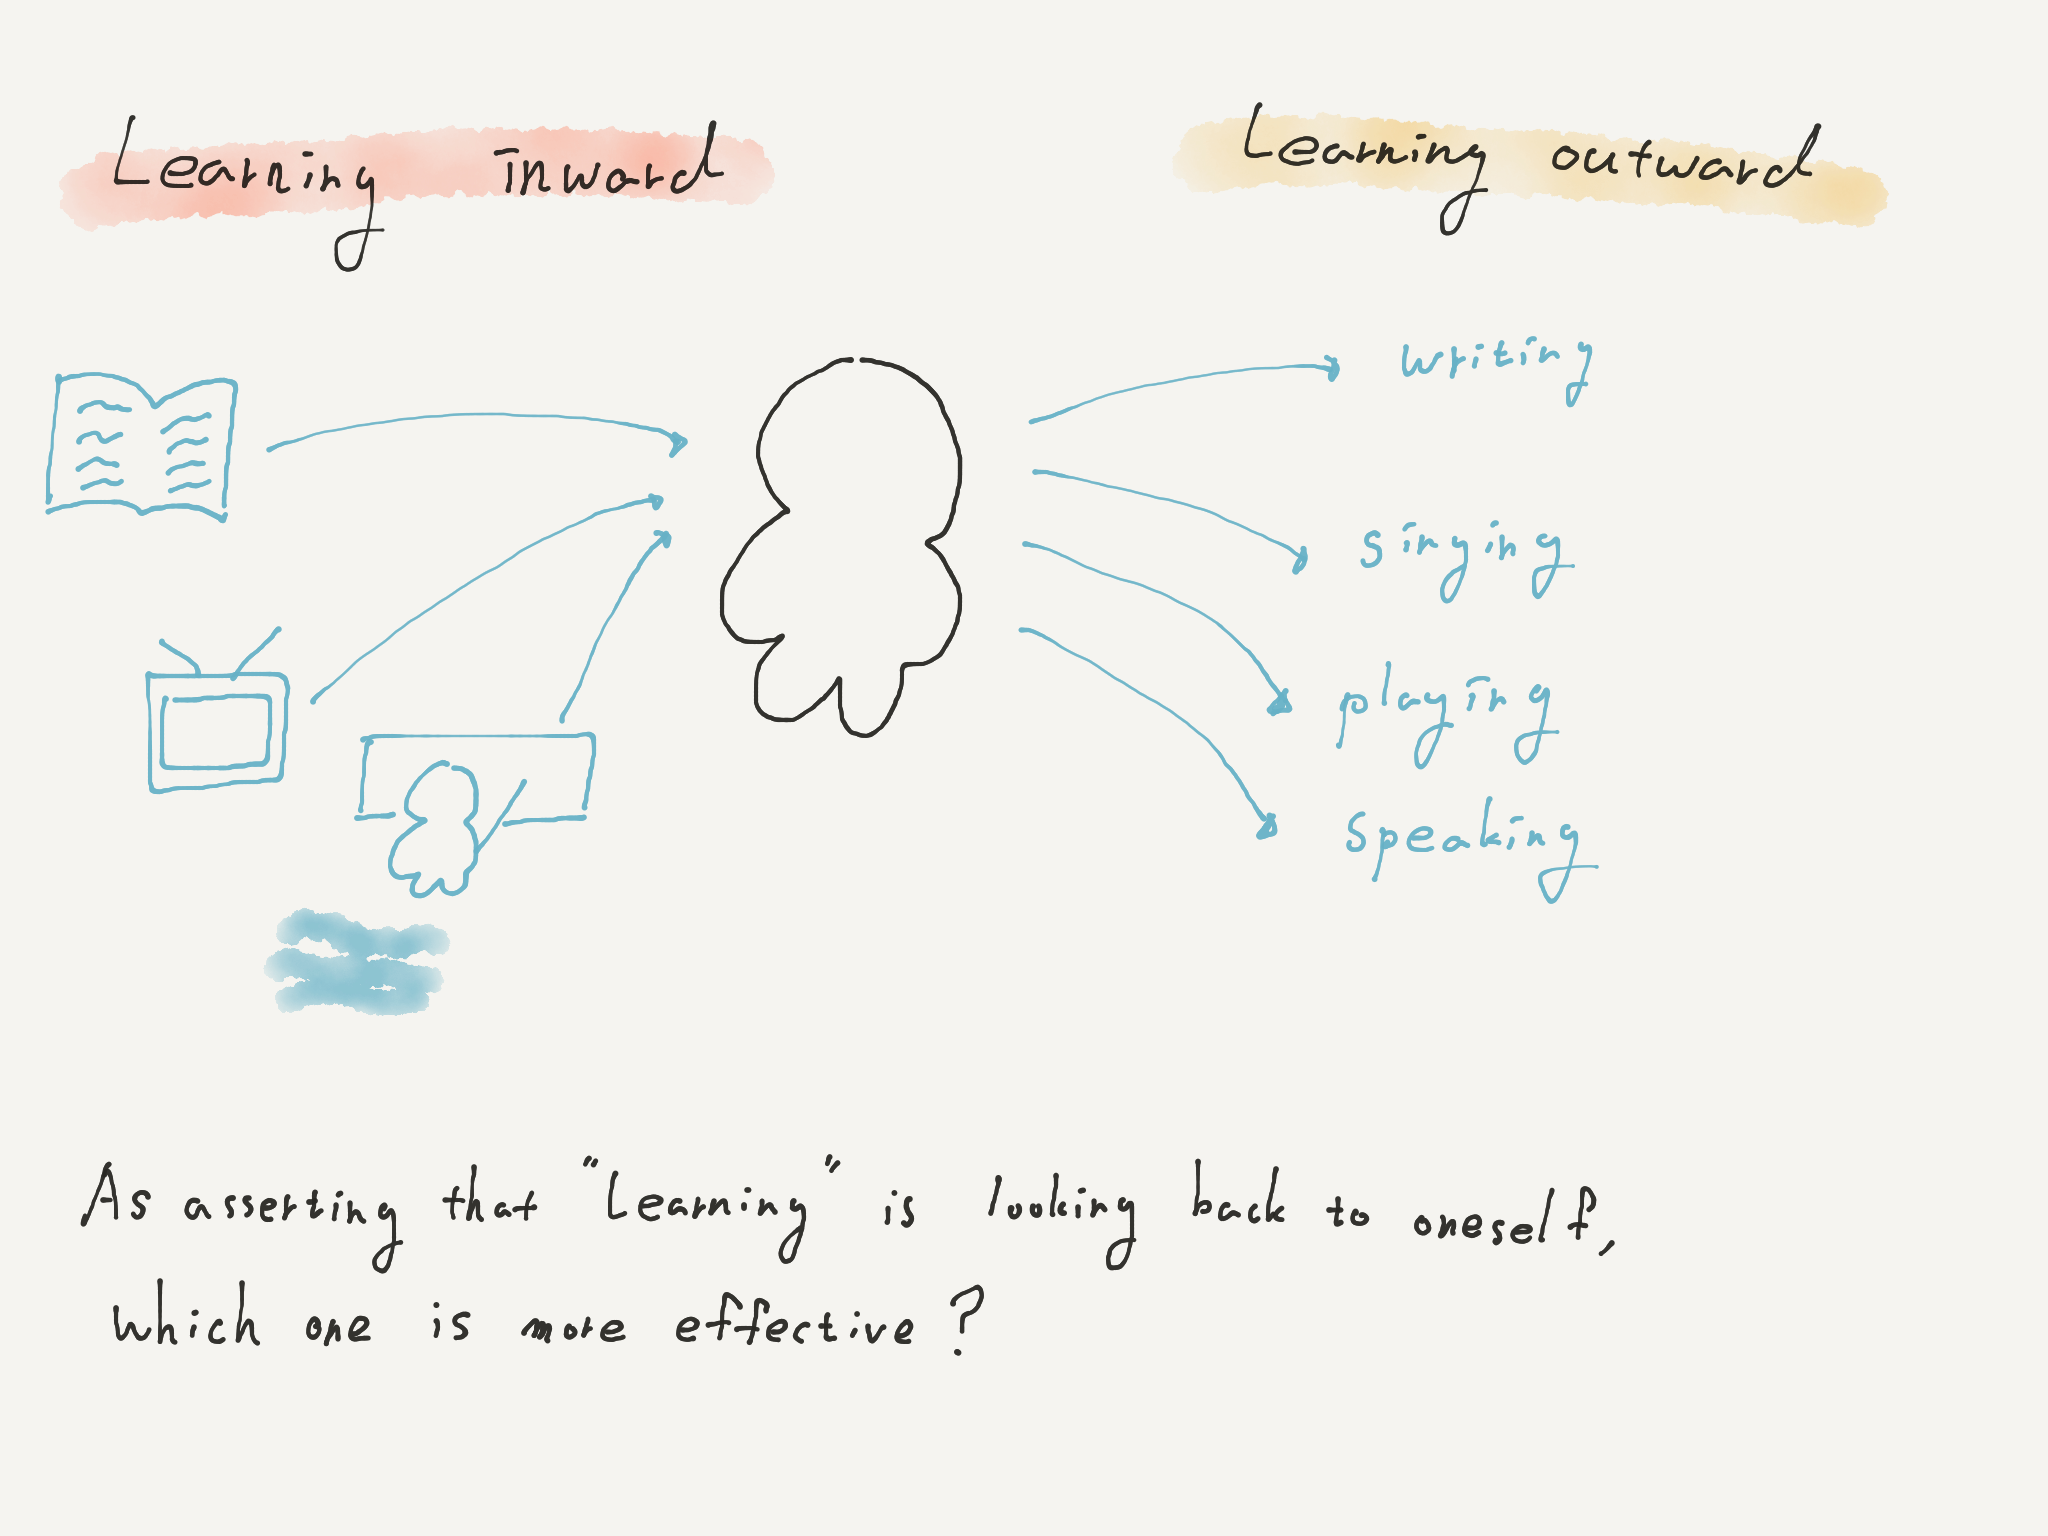 Learning inward
Learning outward
writing
singing
playing
speaking
As asserting that "Learning" is looking back to oneself,
which one is more effective?